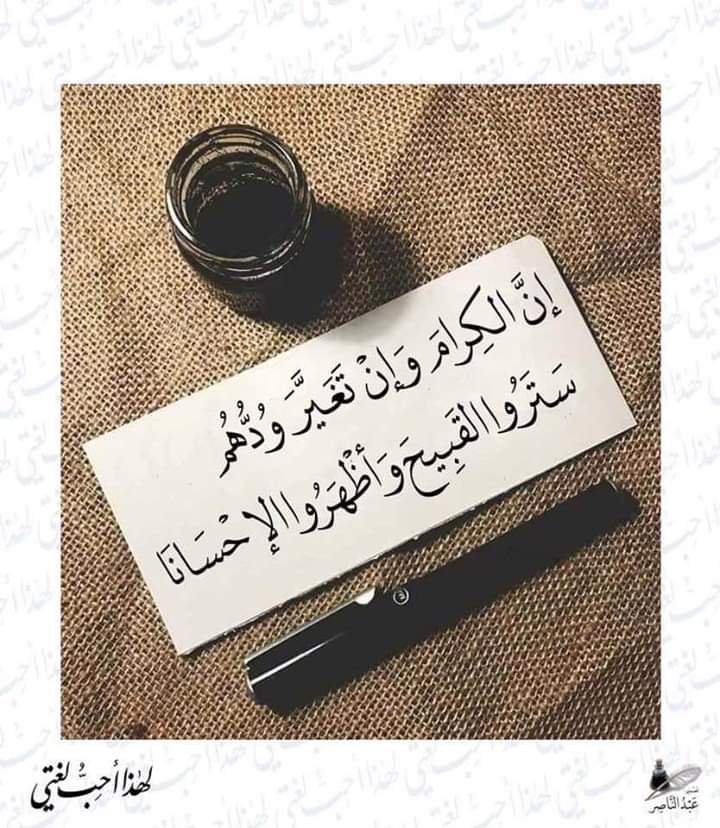 إِنَّ الكِرامَ وَإِنْ تَغَيَّرَ وُدُّهُمُ
سَتَرُوا القَبِيحَ وَأَظْهَرُوا الإِحْسَانَا
لهٰذا أحِبُّ لغتي
عَبْدُ النَّاصِر